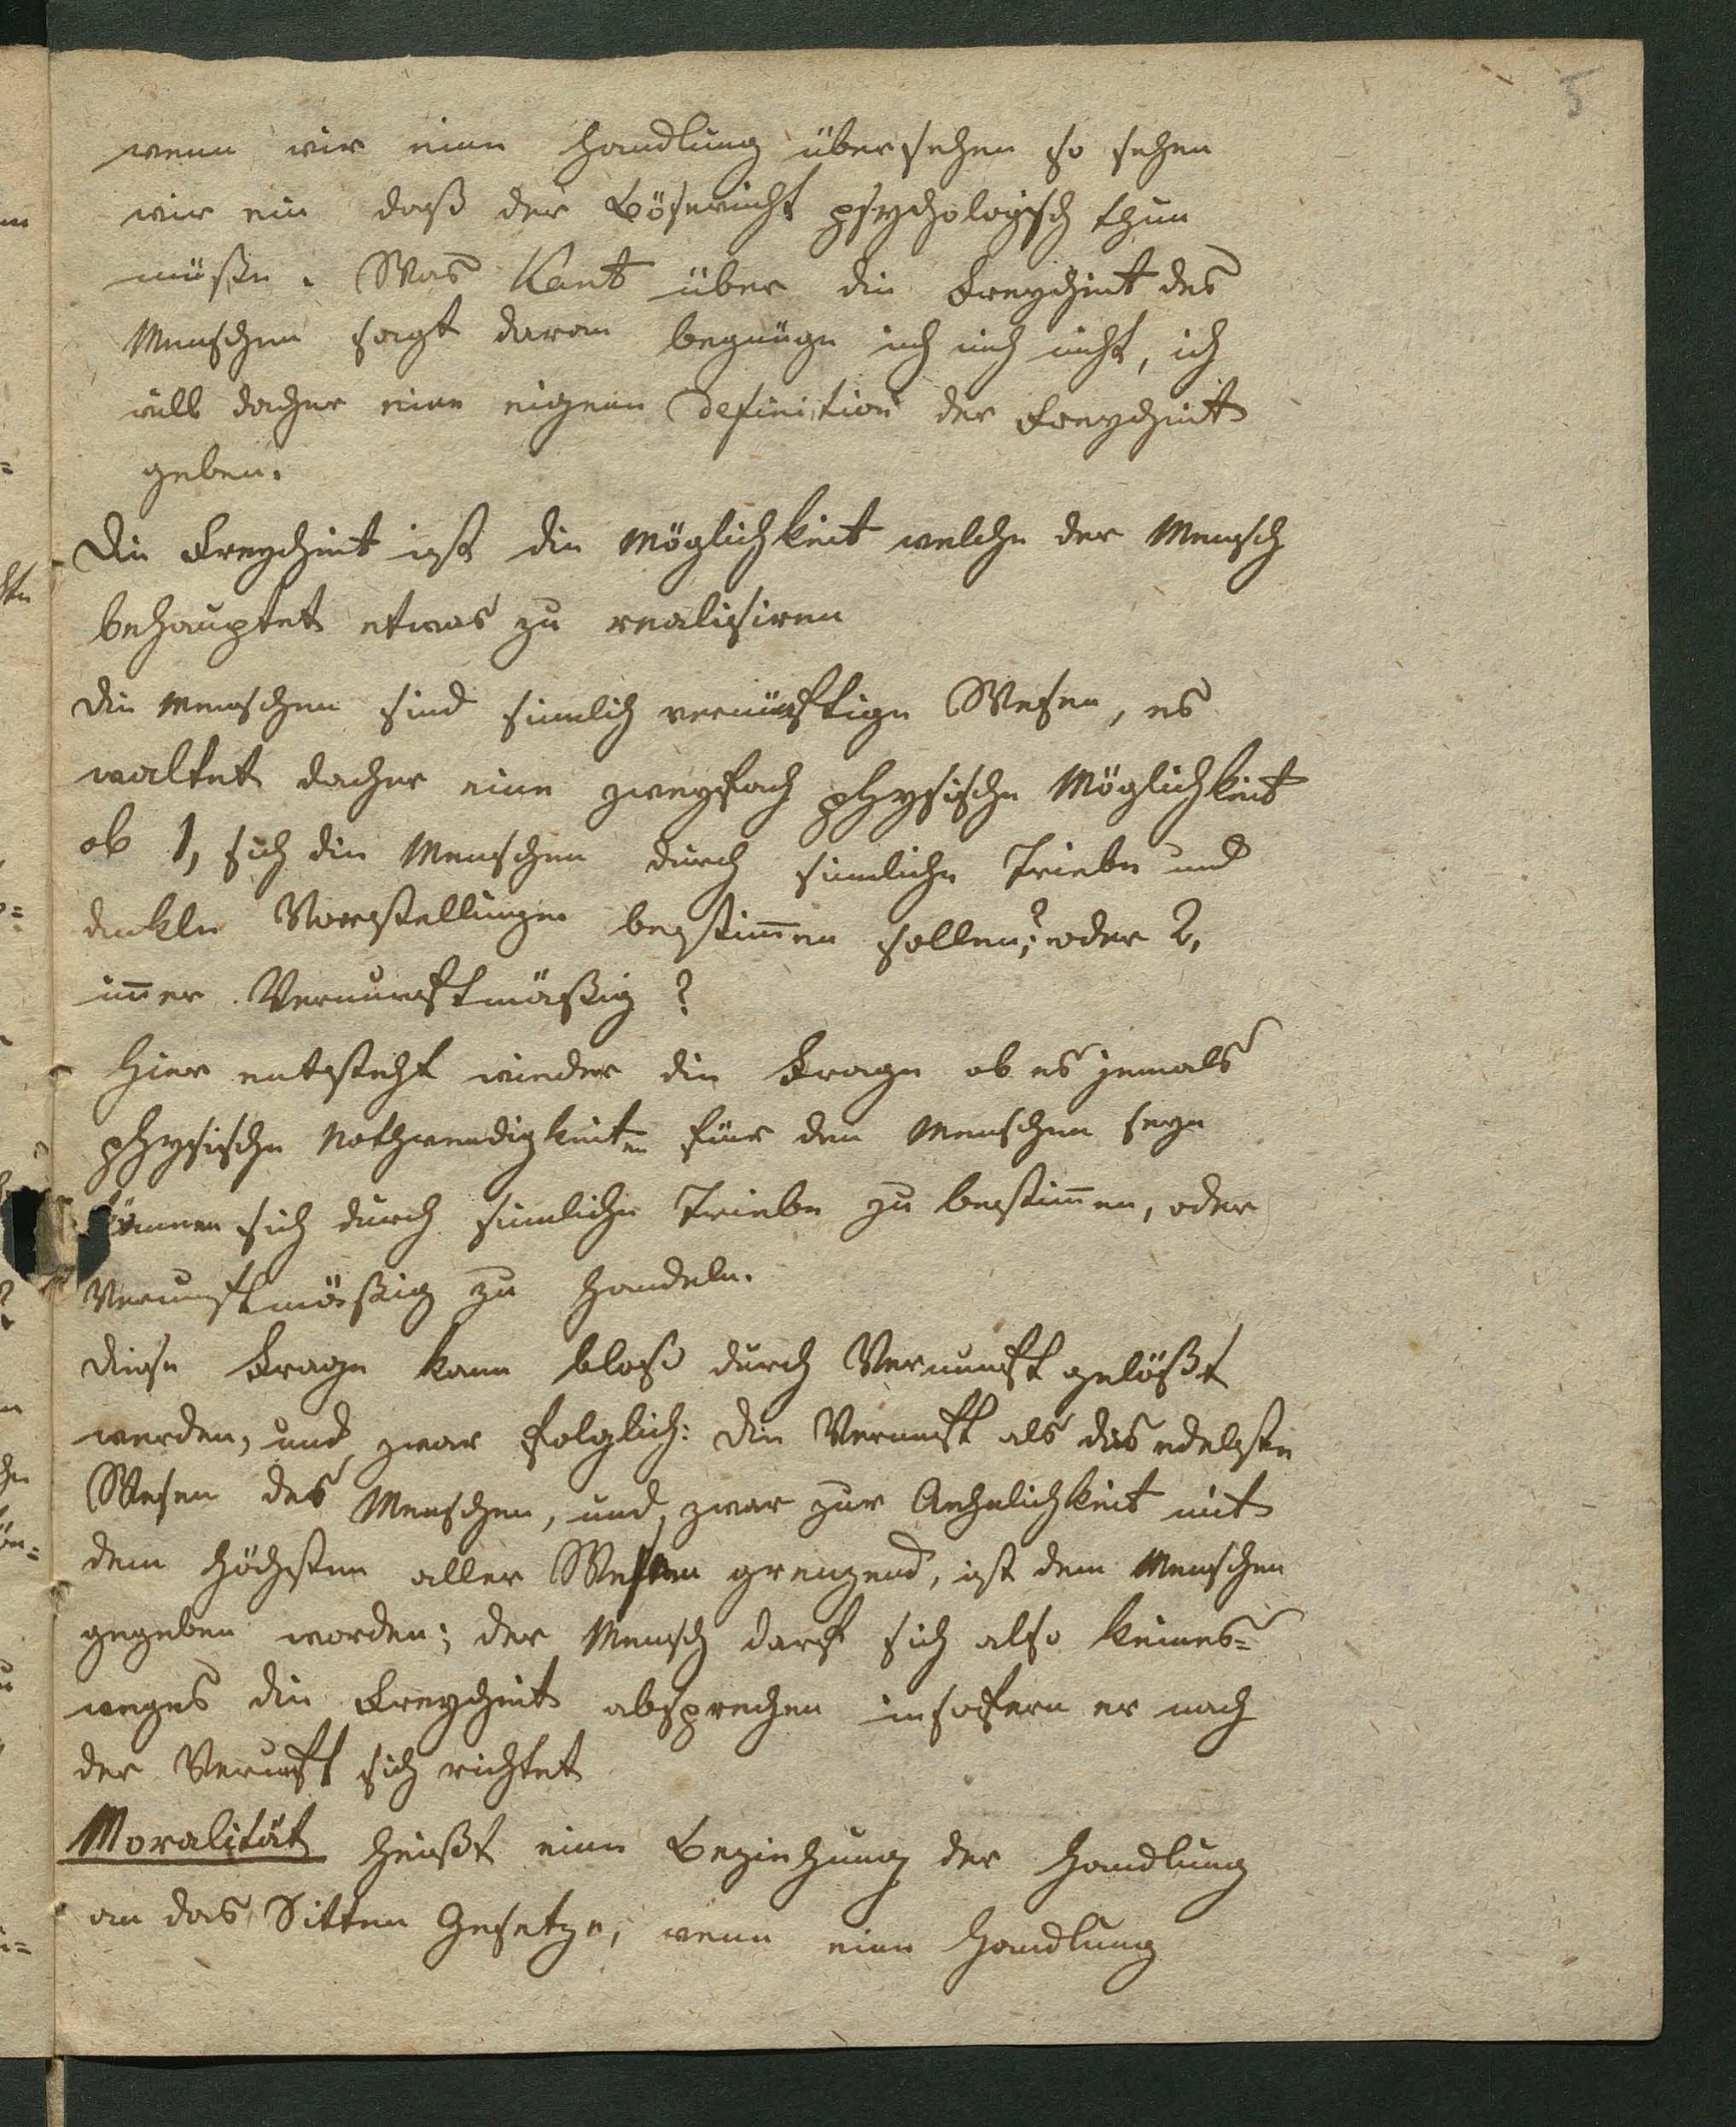 5
wenn wir eine Handlung übersehen so sehen
wir ein daß der Bösewicht psychologisch thun
müße. Was Kant über die Freyheit des
Menschen sagt daran begnüge ich mich nicht, ich
will daher eine eigene Definition der Freyheit
geben.
Die Freyheit ist die Möglichkeit welche der Mensch
behauptet etwas zu realisiren
die Menschen sind sinnlich vernünftige Wesen, es
waltet daher eine zweyfach physische Möglichkeit
ob 1, sich die Menschen durch sinnliche Triebe und
dunkle Vorstellungen bestim̅en sollen?; oder 2,
im̅er Vernunftmäßig?
Hier entsteht wieder die Frage ob es jemals
physische Nothwendigkeiten für den Menschen seyn
können sich durch sinnliche Triebe zu bestim̅en, oder
Vernunftmäßig zu handeln.
diese Frage kann bloß durch Vernunft gelößt
werden, und zwar folglich: die Vernunft als das edelste
Wesen des Menschen, und zwar zur Aehnlichkeit mit
dem höchsten aller Wesen grenzend, ist dem Menschen
gegeben worden; der Mensch darf sich also keines=
weges die Freyheit absprechen insofern er nach
der Vernunft sich richtet
Moralität heißt eine Beziehung der Handlung
an das Sitten Gesetze, wenn eine Handlung